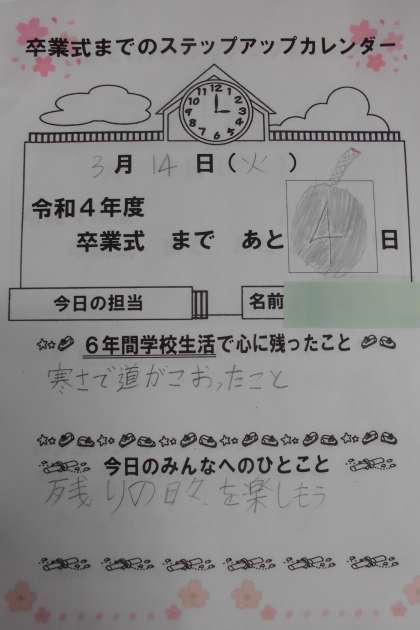 卒業式までのステップアップカレンダー
12 1 2 3 4 5 6 7 8 9 10 11
3月14日(火)
令和4年度
卒業式 まで あと4日
今日の担当 名前
6年間学校生活で心に残ったこと
寒さで道がこおったこと
今日のみんなへのひとこと
残りの日々を楽しもう